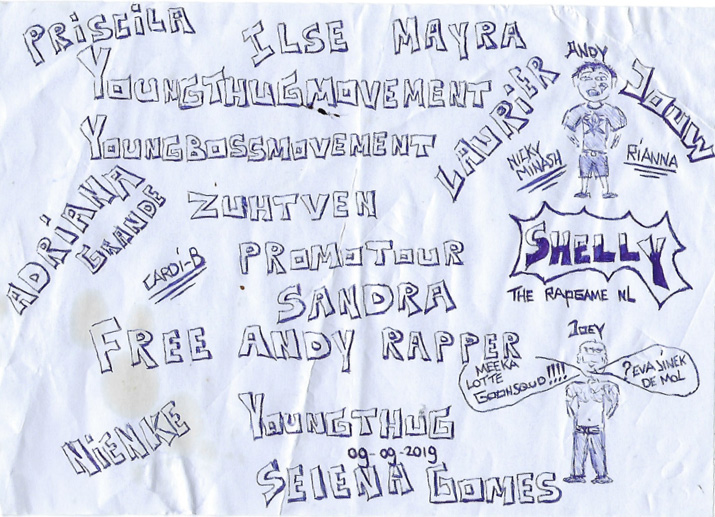 PRISCILA
ILSE
MAYRA
ANDY
YOUNGTHUGMOVEMENT
LAURIER
JOUW
YOUNGBOSSMOVEMENT
NICKY
MINASH
RIANNA
ADRIANA
GRANDE
ZUHTVEN
CARDI-B
PROMOTOUR
SHELLY
THE RAPGAME NL
SANDRA
FREE ANDY RAPPER
JOEY
MEEKA
LOTTE
!!!!
?EVA JINEK
DE MOL
NIENKE
YOUNGTHUG
09-09-2019
SELENA GOMES